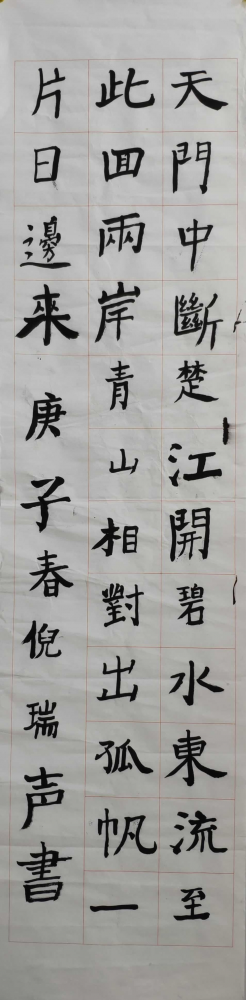 天門中斷楚江開碧水東流至
此回兩岸青山相對出孤帆一
片日邊來 庚子春倪瑞声書